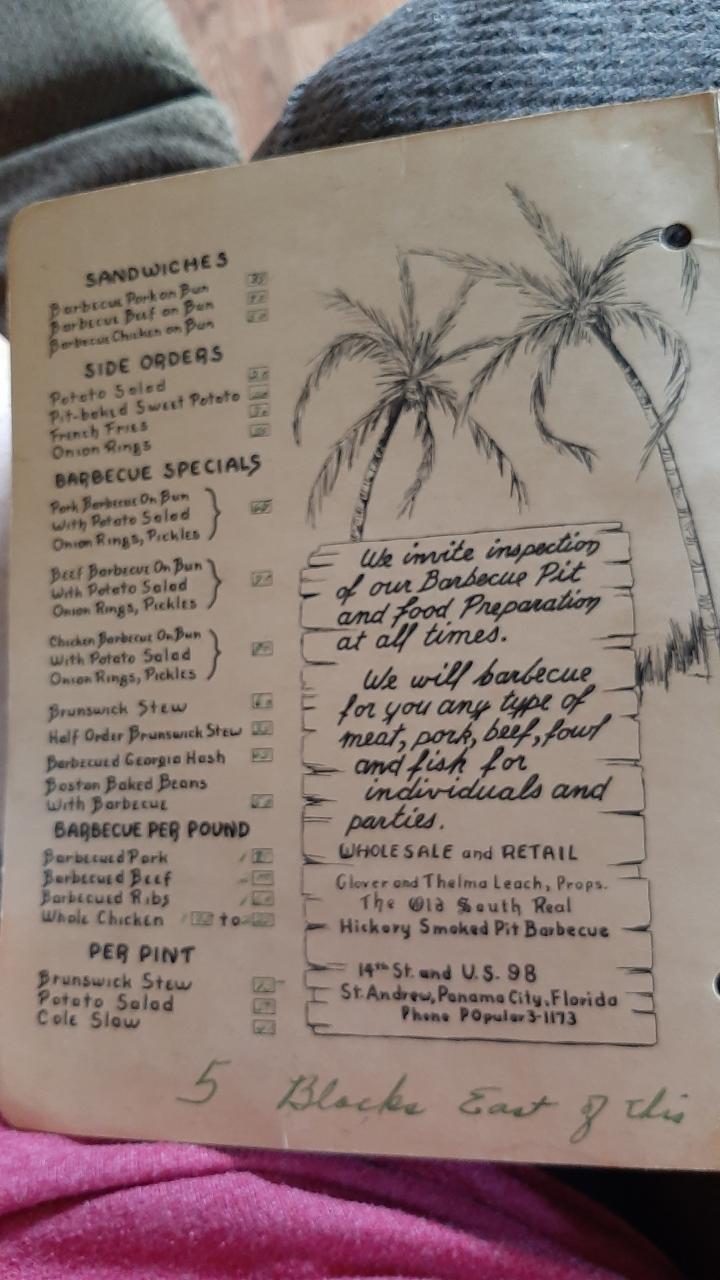 SANDWICHES
Barbecue Pork on Bun
Barbecue Beef on Bun
Barbecue Chicken on Bun
SIDE ORDERS
Potato Salad
Pit-baked Sweet Potato
French Fries
Onion Rings
BARBECUE SPECIALS
Pork Barbecue On Bun
With Potato Salad
Onion Rings, Pickles
Beef Barbecue On Bun
With Potato Salad
Onion Rings, Pickles
Chicken Barbecue On Bun
With Potato Salad
Onion Rings, Pickles
Brunswick Stew
Half Order Brunswick Stew
Barbecued Georgia Hash
Boston Baked Beans
With Barbecue
BARBECUE PER POUND
Barbecued Pork
Barbecued Beef
Barbecued Ribs
Whole Chicken to
PER PINT
Brunswick Stew
Potato Salad
Cole Slaw
We invite inspection
of our Barbecue Pit
and food Preparation
at all times.
We will barbecue
for you any type of
meat, pork, beef, fowl
and fish for
individuals and
parties.
WHOLESALE and RETAIL
Glover and Thelma Leach, Props.
The Old South Real
Hickory Smoked Pit Barbecue
14th St. and U.S. 98
St. Andrew, Panama City, Florida
Phone POpular 3-1173
5 Blocks East of This